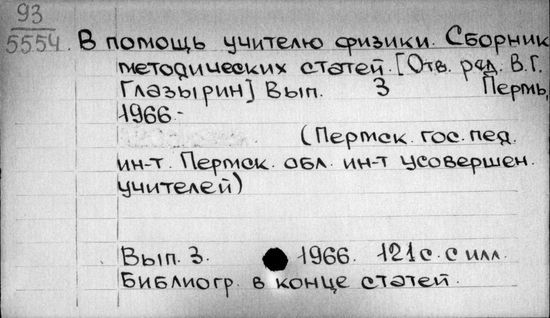 93
5554
В помощь учителю физики. Сборник
методических статей. [Отв. ред. В.Г.
Глазырин] Вып. 3 Пермь,
1966-
(Пермск. гос. пед.
ин-т. Пермск. обл. ин-т усовершен.
учителей)
Вып. 3. 1966. 121 с. с илл.
Библиогр. в конце статей.